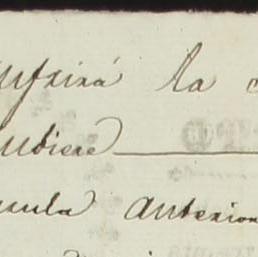 ufrirá la
udiere
mula anterior